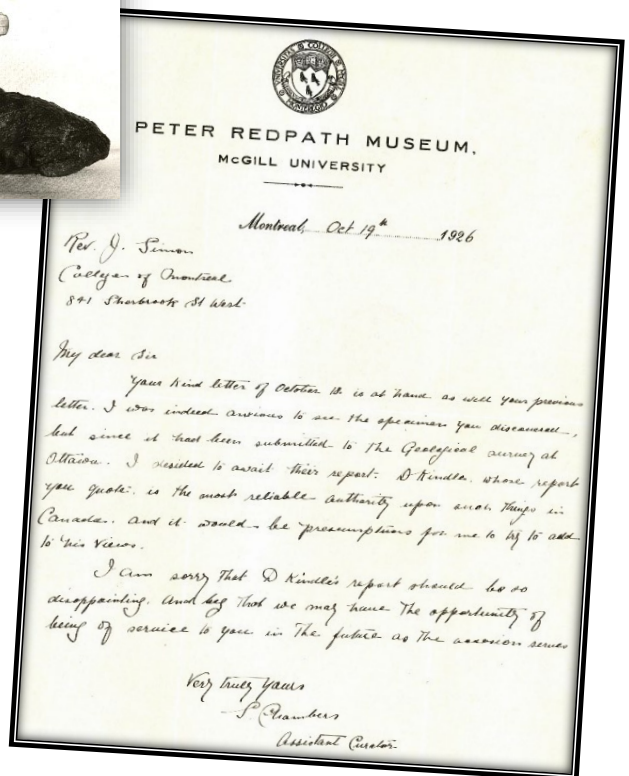 PETER REDPATH MUSEUM,
McGILL UNIVERSITY
Montreal, Oct 19th 1926
Rev. J. Simon
College of Montreal
841 Sherbrook St West
My dear Sir
Your kind letter of October 18 is at hand as well your previous
letter. I was indeed anxious to see the specimen you discovered,
but since it had been submitted to the Geological survey at
Ottawa. I decided to await their report. D Kindle. whose report
you quote. is the most reliable authority upon such things in
Canada. and it would be presumptions for me to try to add
to his views.
I am sorry that D Kindle's report should be so
disappointing. And beg that we may have the opportunity of
being of service to you in the future as the occasion serves
Very truly yours
Chambers
Assistant Curator